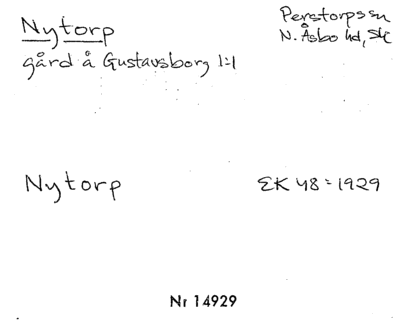 Nytorp
Perstorps sn
N. Åsbo hd, Sk
gård å Gustavsborg 1:1
Nytorp
EK 48 = 1929
Nr 14929